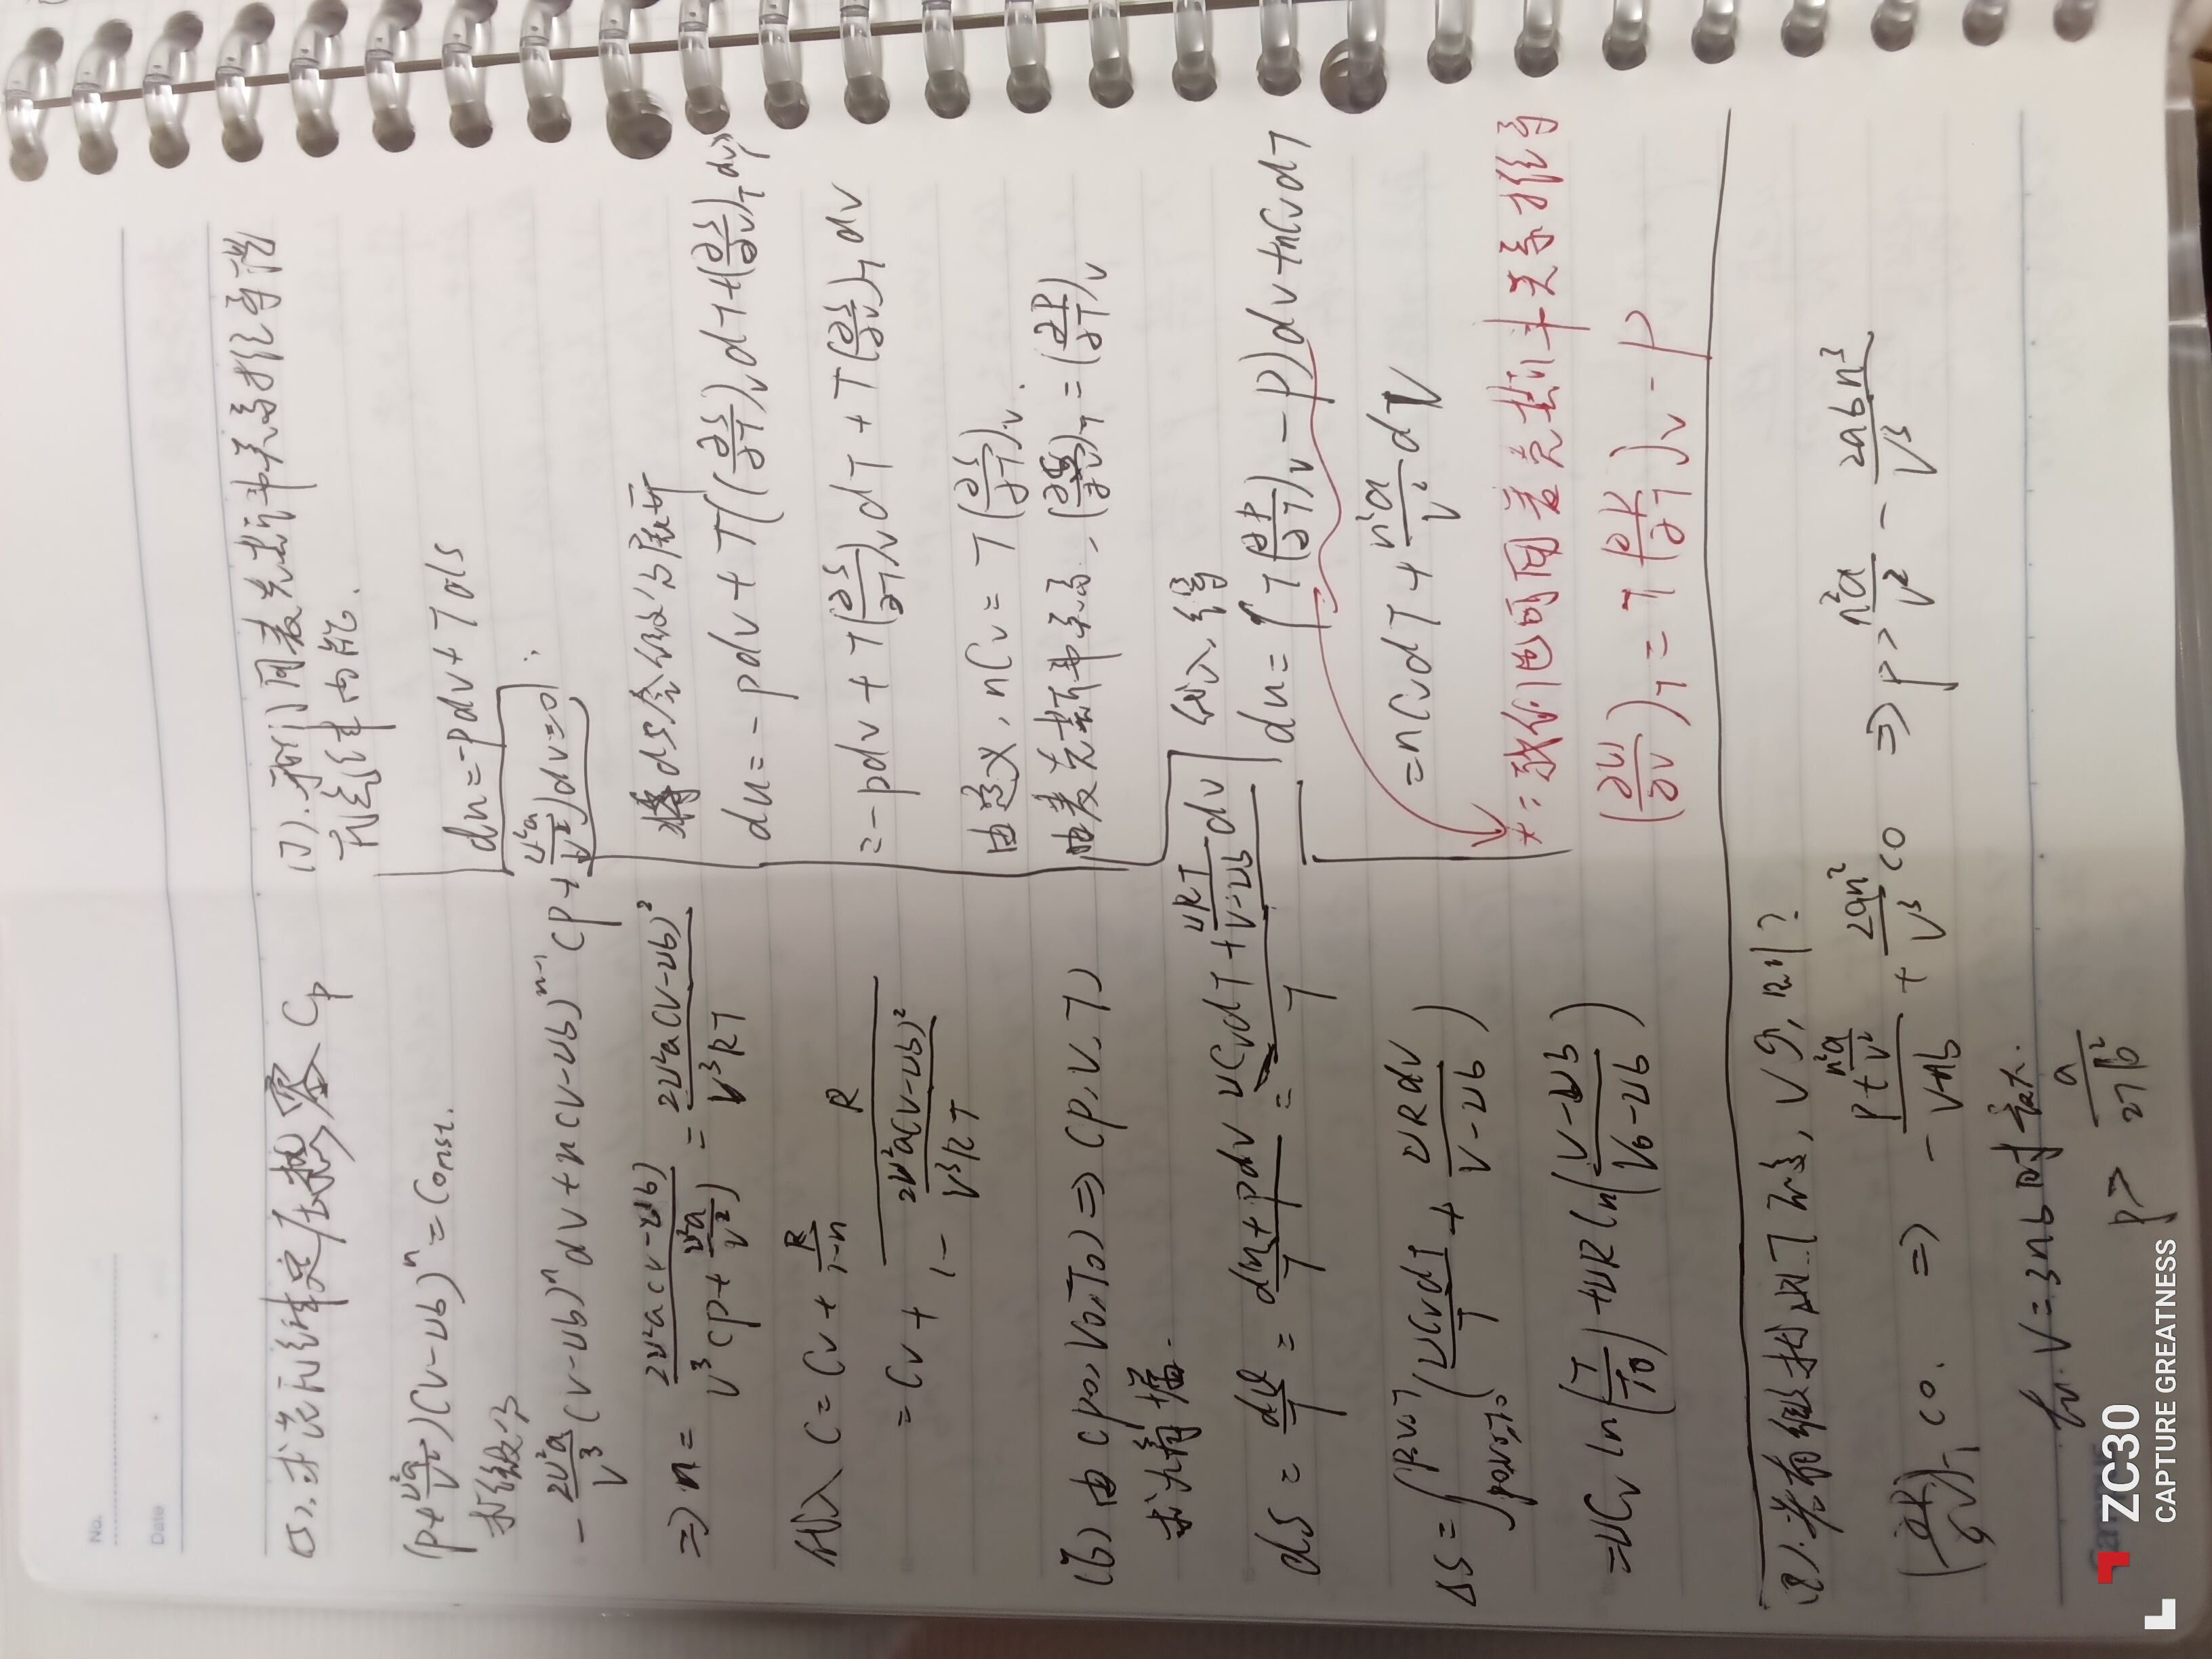 No.
Date
(5).求范氏气体定压热容Cp
(P+ν²a/V²)(V-νb)ⁿ=Const.
-2ν²a/V³(V-νb)ⁿdV+n(V-νb)ⁿ⁻¹(P+ν²a/V²)dV=0
⇒n=2ν²a(V-νb)/V³(P+ν²a/V²)=2ν²a(V-νb)²/V³RT
代入C=Cv+R/1-n
=Cv+R/1-2ν²a(V-νb)²/V³RT
(6)由(P₀,V₀,T₀)⇒(P,V,T)
求熵.
dS=dQ/T=du+pdV/T=νCvdT+νRT/V-νb dV/T
ΔS=∫(νCvdT/T+νRdV/V-νb)
=νCv ln(T/T₀)+νR ln(V-νb/V₀-νb)
(7).利用麦克斯韦关系推导范氏气体内能.
du=-pdv+Tds
将dS全微分展开
du=-pdv+T((∂S/∂T)ᵥdT+(∂S/∂V)_T dv)
=-pdv+T(∂S/∂T)ᵥdT+T(∂S/∂V)_T dv
由定义,nCv=T(∂S/∂T)ᵥ.
由麦克斯韦关系,(∂S/∂V)_T=(∂P/∂T)ᵥ
代入得
du=(T(∂P/∂T)ᵥ-P)dv+nCvdT
=nCvdT+n²a/V²dV
*:我们也可用麦克斯韦关系推导
(∂U/∂V)_T=T(∂P/∂T)ᵥ-P
T不变,V
(∂P/∂V)_T<0. ⇒ -P+n²a/V²/V-nb+2an²/V³<0 ⇒P>n²a/V²-2abn³/V³
V=3nb时最大.
P>a/27b²
ZC30
CAPTURE GREATNESS